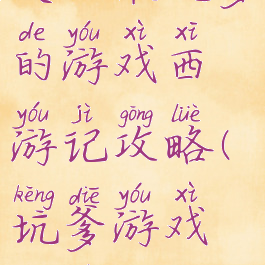 de yóu xì xī
的游戏西
yóu jì gōng lüè
游记攻略(
kēng diē yóu xì
坑爹游戏